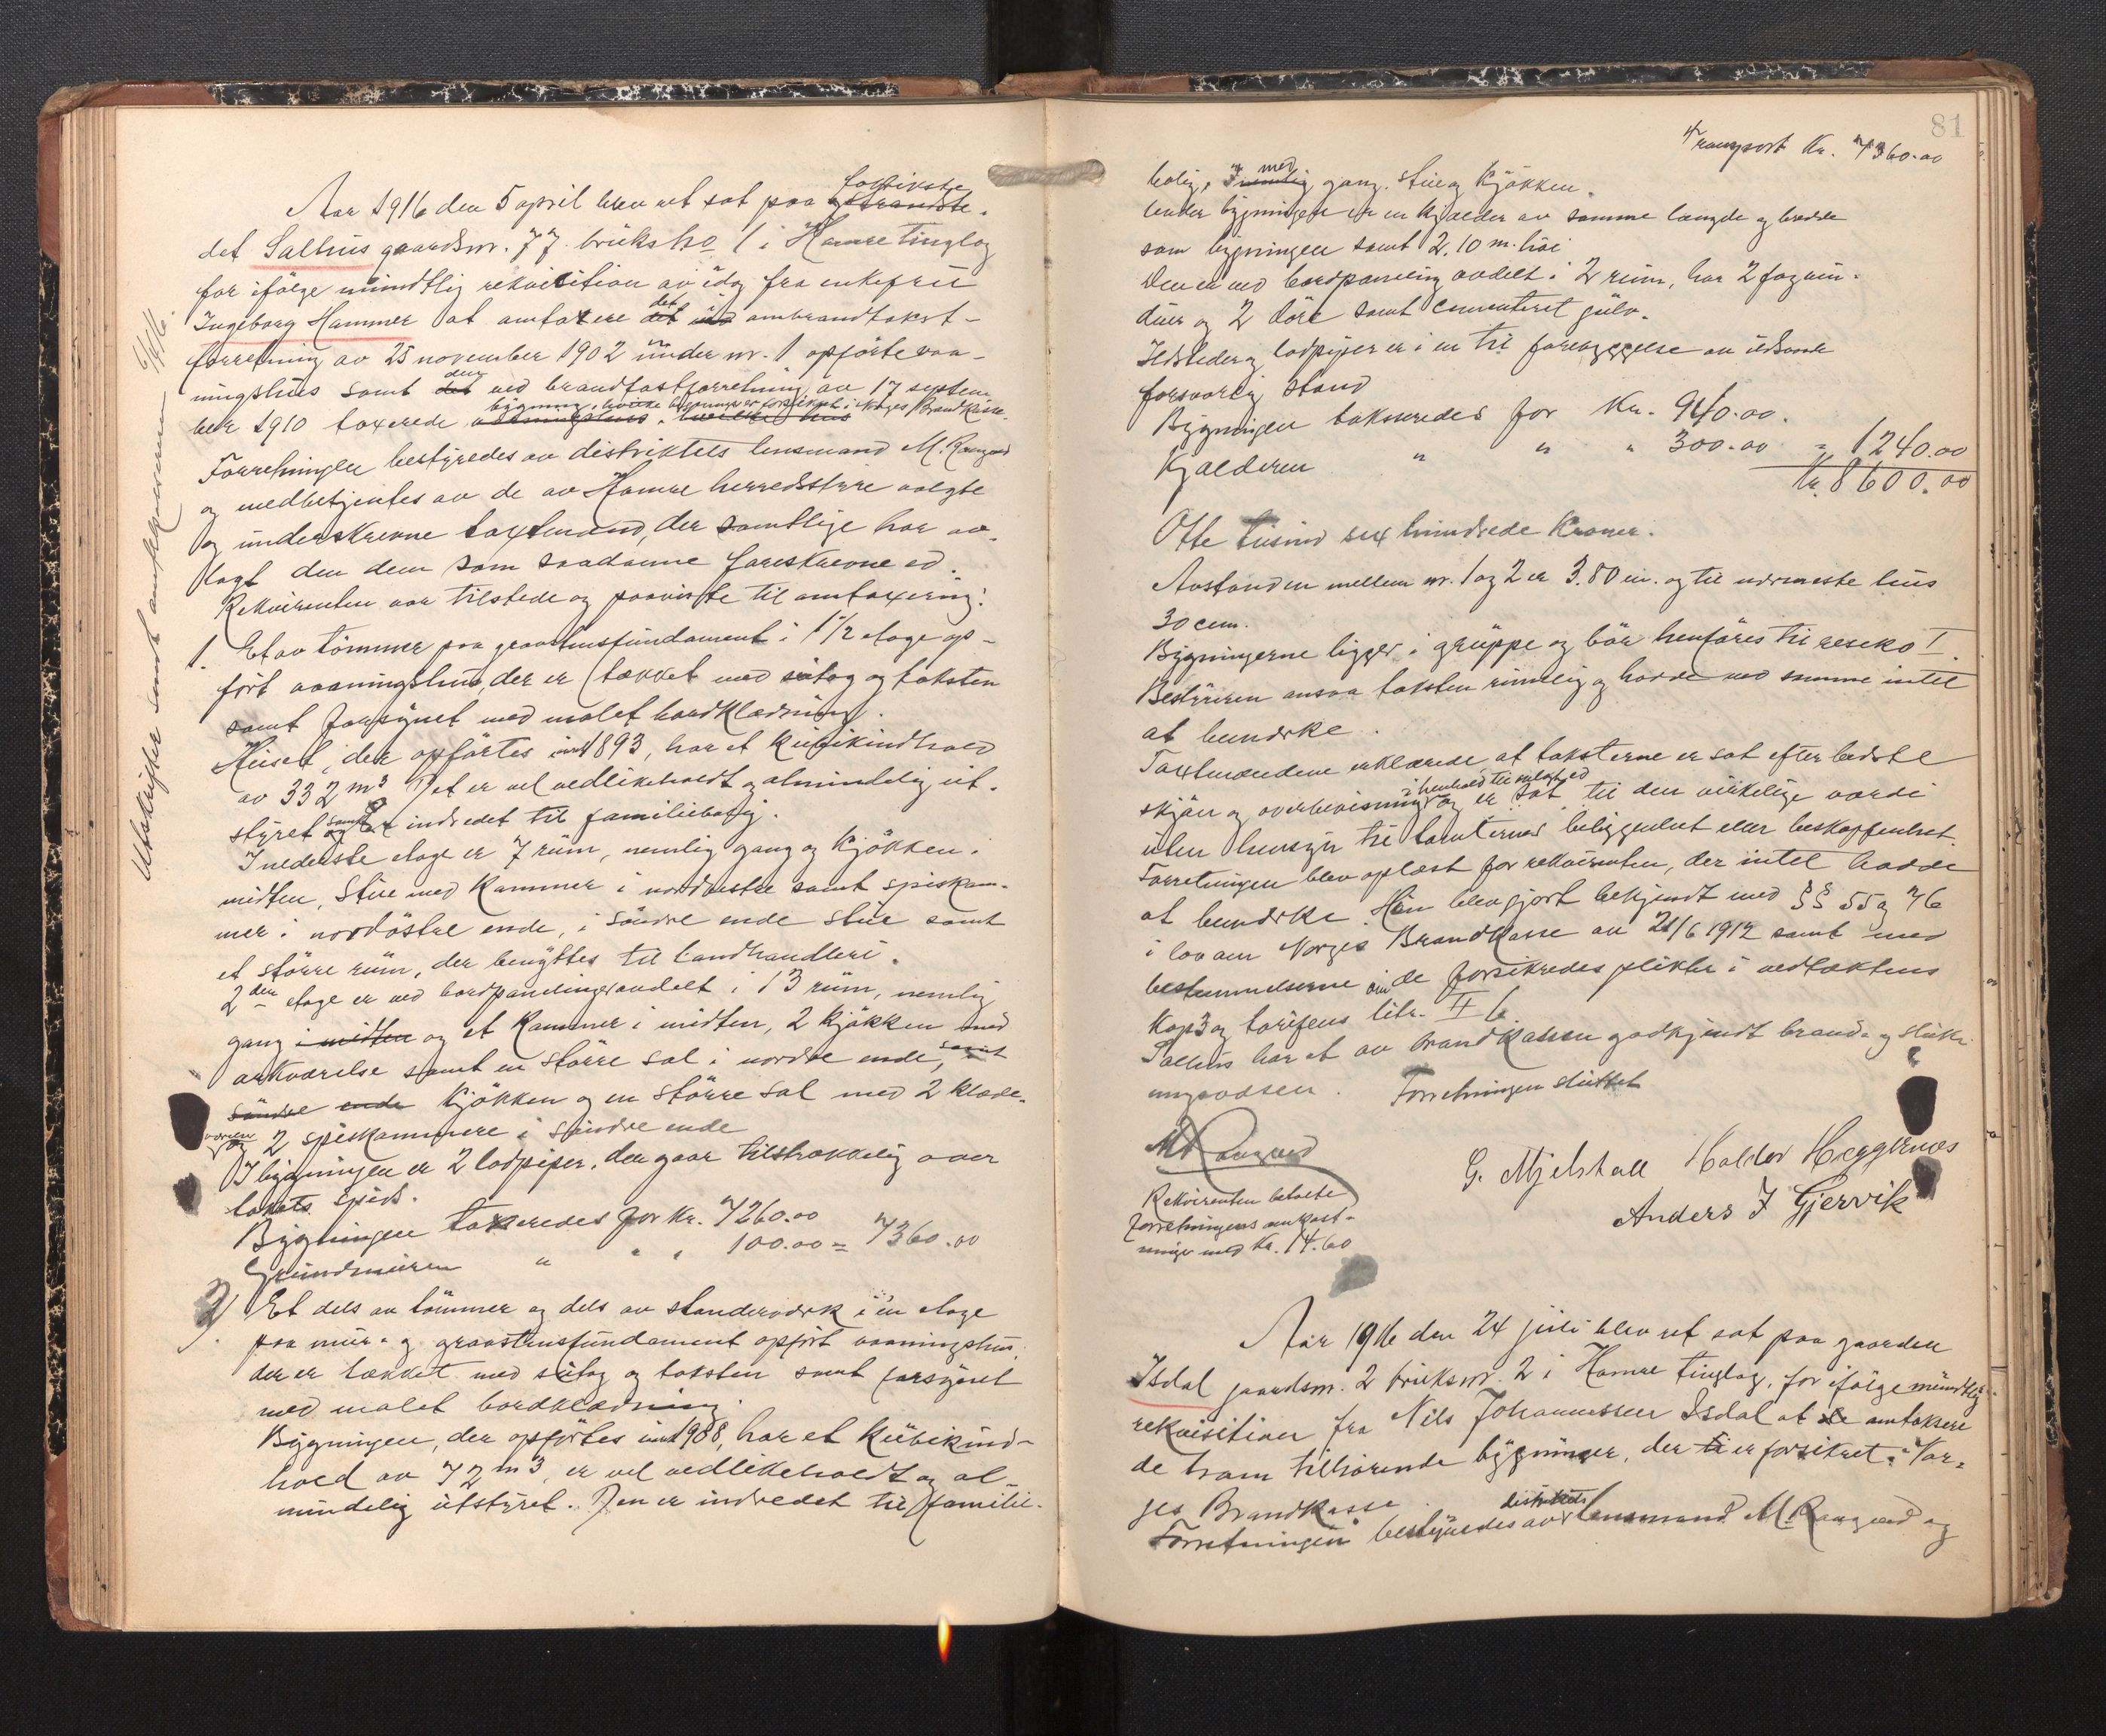 Utskrifter sendt amtskassereren 6/4 16.
Aar 1916 den 5 april blev ret sat paa fabrikste-
det Salhus gaardsnr. 77 bruksno 1 i Hamre tinglag
for ifölge mundtlig rekvisition av idag fra enkefru
Ingeborg Hammer at omtaxere det i ombrandtakst-
forretning av 25 november 1902 under nr. 1 opförte vaa-
ningshus samt den ved brandtaxtforretning av 17 septem-
ber 1910 taxerede bygning, hvilke bygninger er forsikret i Norges Brandkasse.
Forretningen bestyredes av distriktets lensmand M. Raugand
og medbetjentes av de av Hamre herredsstyre valgte
og underskrevne taxtmænd, der samtlige har av-
lagt den dem som saadanne foreskrevne ed.
Rekvirenten var tilstede og paaviste til omtaxering:
1. Et av tömmer paa graastensfundament i 1 1/2 etage op-
fört vaaningshus, der er tækket med sutag og taksten
samt forsynet med malet bordklædning.
Huset, der opförtes i 1893, har et kubikindhold
av 332 m3. Det er vel vedlikeholdt og almindelig ut-
styret samt indredet til familiebolig.
I nederste etage er 7 rum, nemlig gang og kjökken i
midten, stue med kammer i nordvestre samt spiskam-
mer i nordöstre ende, i söndre ende stue samt
et större rum, der benyttes til landhandleri.
2den etage er ved bordpanelinger avdelt i 13 rum, nemlig
gang i midten og et kammer i midten, 2 kjökken med
arkværelse samt en större sal i nordre ende, samt
söndre ende kjökken og en större sal med 2 klæde-
og 2 spiskammere i söndre ende
I bygningen er 2 lodpiper, der gaar tilstrækkelig over
takets spids.
Bygningen taxeredes for Kr. 7260.00
Grundmuren " " " 100.00 = 7360.00
2) Et dels av tömmer og dels av standerværk i en etage
paa mur- og graastensfundament opfört vaaningshus,
der er tækket med sutag og taksten samt forsynet
med malet bordklædning.
Bygningen, der opförtes i 1908, har et kubikind-
hold av 72 m3, er vel vedlikeholdt og al-
mindelig utstyret. Den er indredet til familie-
81
Transport Kr. 7360.00
bolig, med gang, stue og kjökken.
Under bygningen er en kjælder av samme længde og bredde
som bygningen samt 2,10 m. höi
Den er ved bordpaneling avdelt i 2 rum, har 2 fag vin-
duer og 2 döre samt cementeret gulv.
Ildsteder og lodpiper er i en til forebyggelse av ildsvaade
forsvarlig stand
Bygningen takseredes for Kr. 940.00.
Kjælderen " " " 300.00 = 1240.00
Kr. 8600.00
Otte tusind sex hundrede Kroner.
Avstanden mellem nr. 1 og 2 er 3.80 m. og til nærmeste hus
30 cem.
Bygningerne ligger i gruppe og bör henföres til resiko I.
Bestyreren ansaa taksten rimelig og havde ved samme intet
at bemærke.
Taxtmændene erklærede at taksterne er sat efter bedste
skjön og overbevisning i henhold til avlagt ed og er sat til den virkelige værdi
uten hensyn til tomternes beliggenhet eller beskaffenhet.
Forretningen blev oplæst for rekvirenten, der intet havde
at bemærke. Hun blev gjort bekjendt med §§ 55 og 76
i lov om Norges Brandkasse av 21/6 1912 samt med
bestemmelserne om de forsikredes plikter i vedtæktens
Kap 3 og tarifens litr. II 6.
Salhus har et av brandkassen godkjendt brand- og sluk-
ningsvæsen. Forretningen sluttet
M Raugand
G. Mjelstad Haldor Hæggernæs
Anders J Gjervik
Rekvirenten betalte
forretningens omkost-
ninger med Kr. 14.60
Aar 1916 den 24 juli blev ret sat paa gaarden
Isdal gaardsnr. 2 bruksnr. 2 i Hamre tinglag, for ifölge mundtlig
rekvisition fra Nils Johannessen Isdal at omtaksere
de ham tilhörende bygninger, der er forsikret i Nor-
ges Brandkasse.
Forretningen bestyredes av distriktets lensmand M. Raugand og